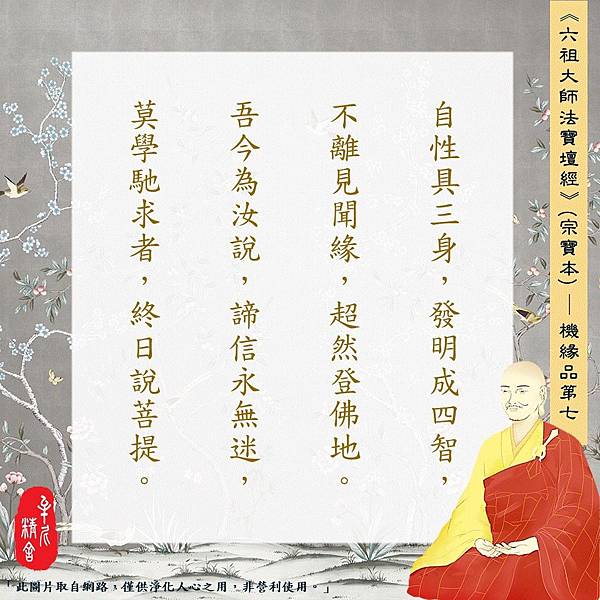 《六祖大師法寶壇經》(宗寶本) — 機緣品第七
自性具三身，發明成四智，
不離見聞緣，超然登佛地。
吾今為汝說，諦信永無迷，
莫學馳求者，終日說菩提。
精舍
「此圖片取自網路，僅供淨化人心之用，非營利使用。」